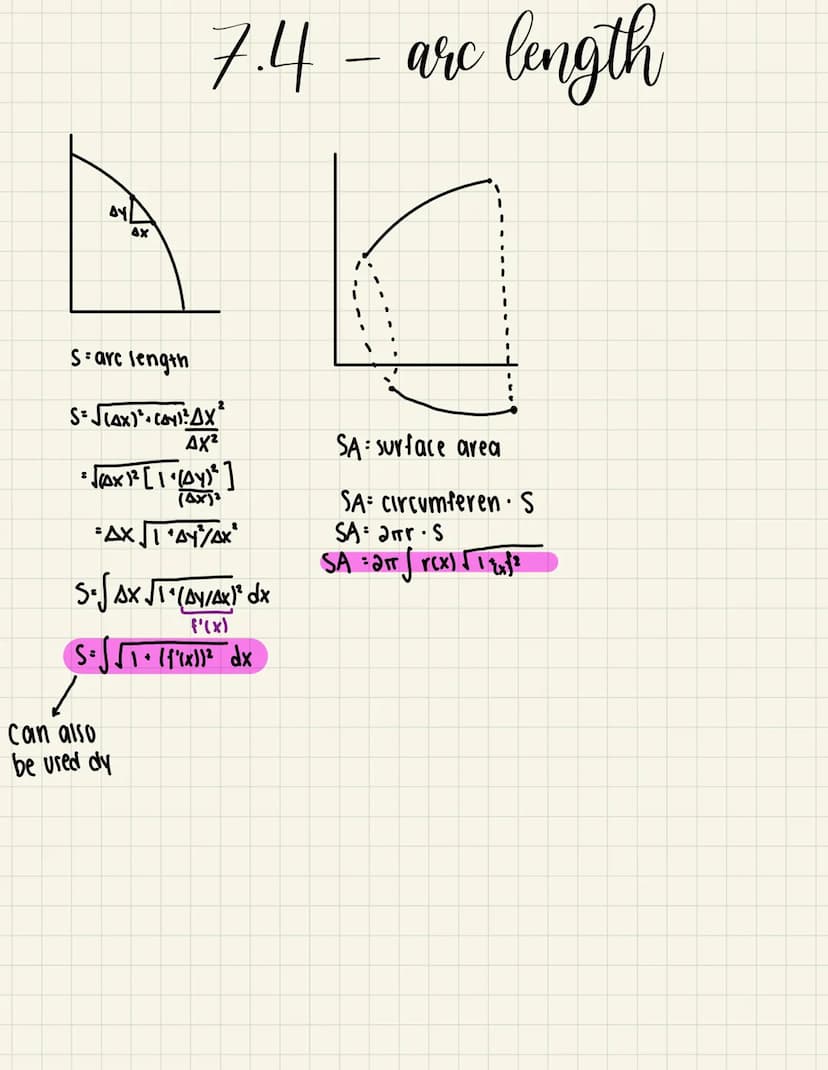 7.4 - arc length
Δy
Δx
S = arc length
S = √(Δx)² + (Δy)² · Δx²
Δx²
= √(Δx)² [1 + (Δy)²]
(Δx)²
= Δx √1 + Δy²/Δx²
S = ∫ Δx √1 + (Δy/Δx)² dx
f'(x)
S = ∫ √1 + (f'(x))² dx
can also
be used dy
SA = surface area
SA = circumferen · S
SA = 2πr · S
SA = 2π ∫ r(x) √1